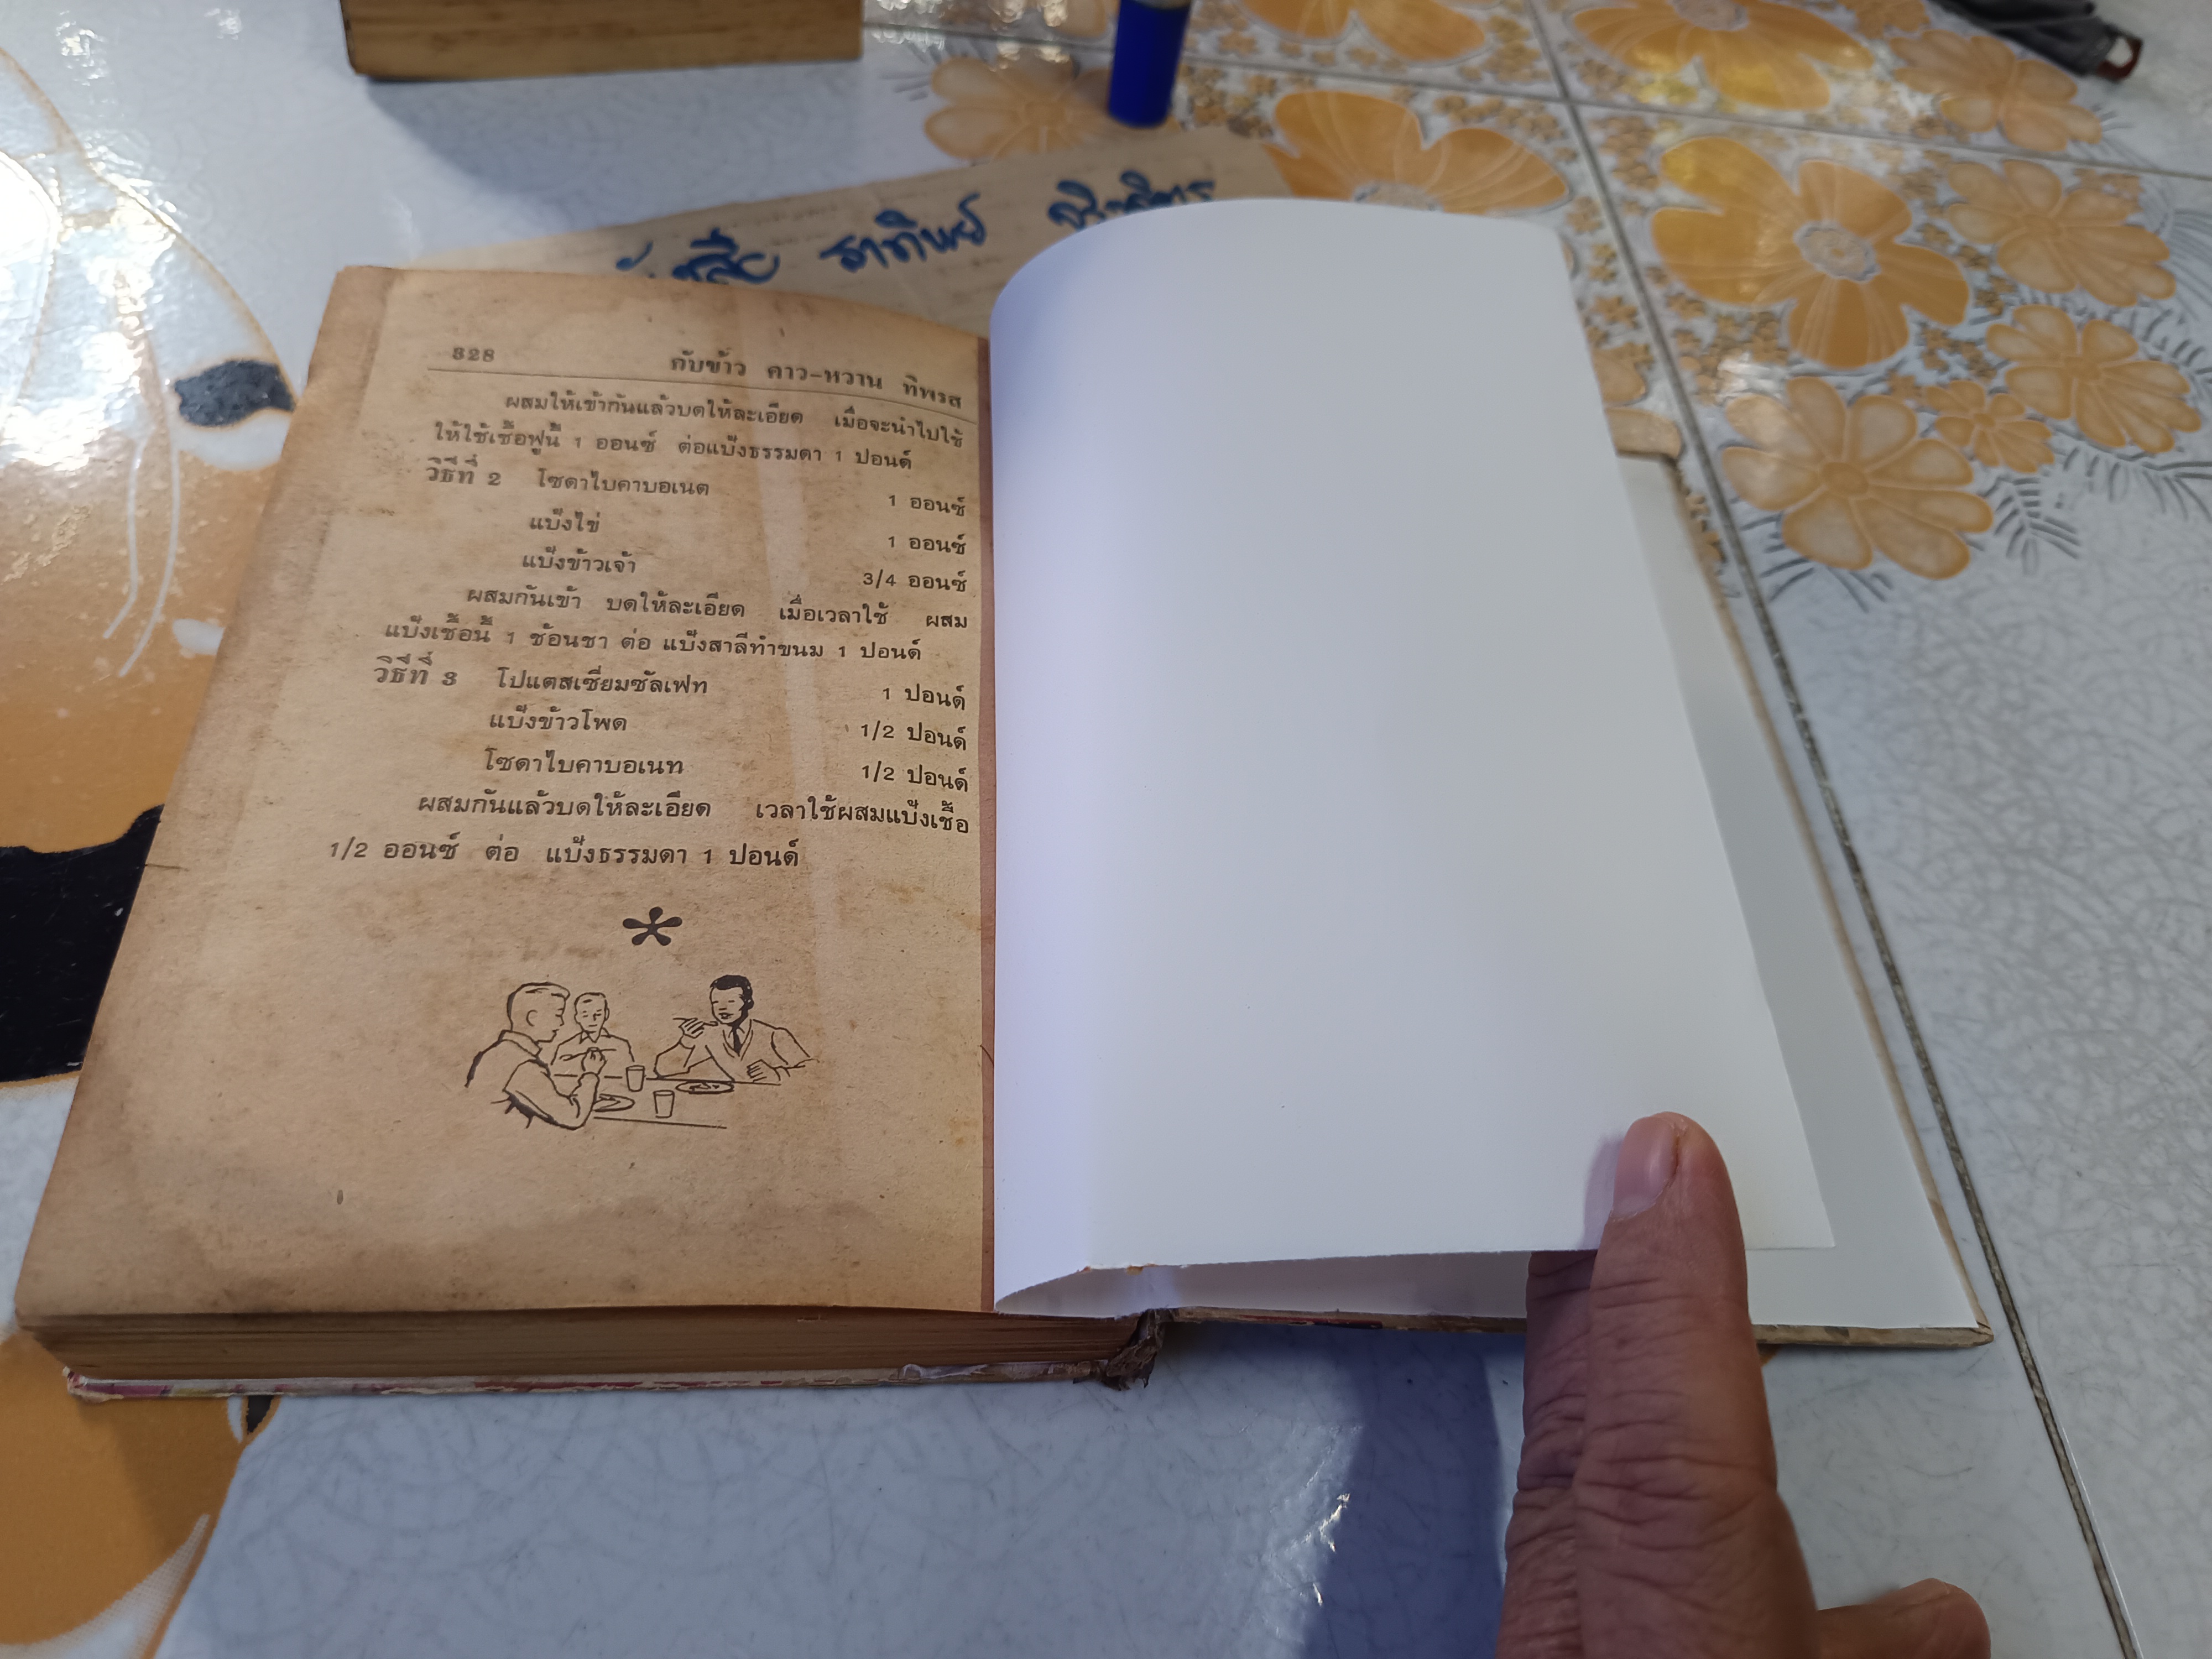 ราทิพย์
328 กับข้าว คาว-หวาน ทิพรส
ผสมให้เข้ากันแล้วบดให้ละเอียด เมื่อจะนำไปใช้
ให้ใช้เชื้อฟูนี้ 1 ออนซ์ ต่อแป้งธรรมดา 1 ปอนด์
วิธีที่ 2 โซดาไบคาบอเนต 1 ออนซ์
แป้งไข่ 1 ออนซ์
แป้งข้าวเจ้า 3/4 ออนซ์
ผสมกันเข้า บดให้ละเอียด เมื่อเวลาใช้ ผสม
แป้งเชื้อนี้ 1 ช้อนชา ต่อ แป้งสาลีทำขนม 1 ปอนด์
วิธีที่ 3 โปแตสเซี่ยมซัลเฟท 1 ปอนด์
แป้งข้าวโพด 1/2 ปอนด์
โซดาไบคาบอเนท 1/2 ปอนด์
ผสมกันแล้วบดให้ละเอียด เวลาใช้ผสมแป้งเชื้อ
1/2 ออนซ์ ต่อ แป้งธรรมดา 1 ปอนด์